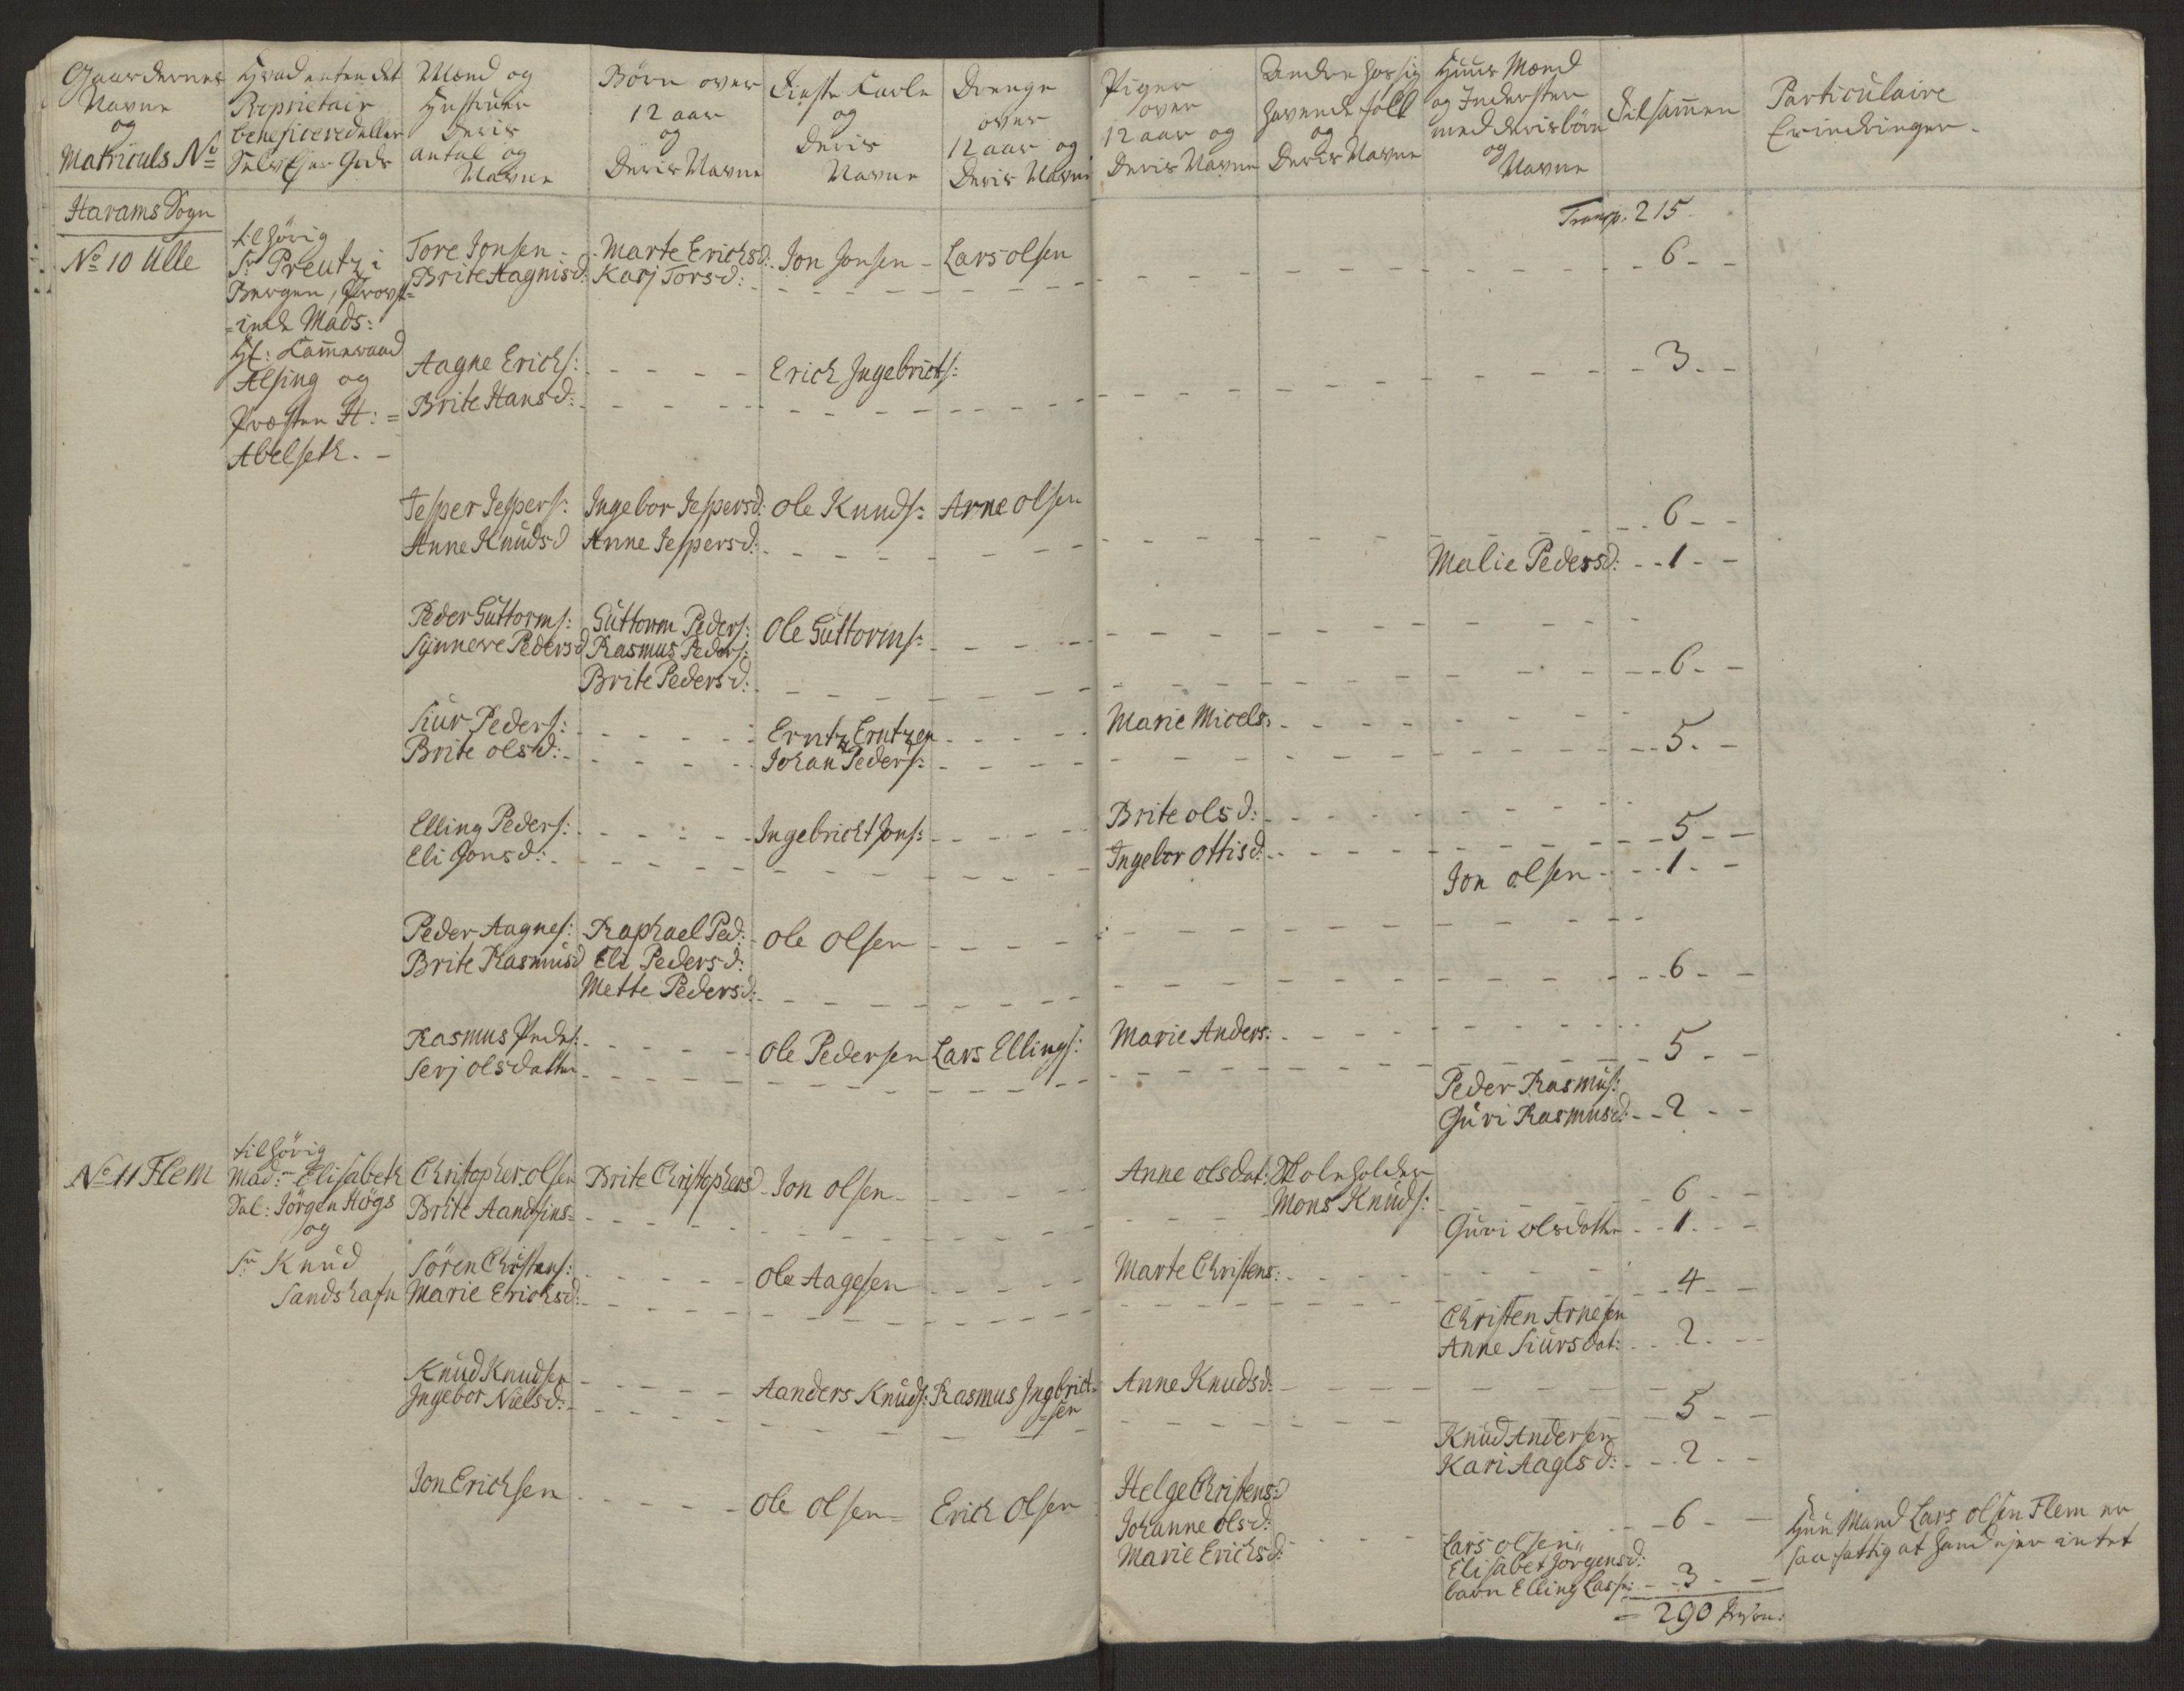 Gaardernes
Navne
og
Matriculs No
Hvad enten det
Proprietair
beneficered eller
Selv Ejer Gods
Mænd og
Hustruer
Deris
antal og
Navne
Börn over
12 aar
og
Deris Navne
Tieste Karle
og
Deris
Navne
Drenge
over
12 aar og
Deris Navne
Piger
over
12 aar og
Deris Navne
Andre hos sig
havende folk
og
Deris Navne
Huus Mænd
og Indersten
med deris börn
og
Navne
Tilsamen
Particulaire
Erindringer
Harams Sogn
Transp. 215
No 10 Ulle
tilhörig
Sr Preutz i
Bergen, Provst=
=inde Mads:
Hf: Kammeraad
Alsing og
Præsten H: =
Abelseth. -
Tore Jonsen - Marte Erichsd: Jon Jonsen - Lars olsen - 6 - -
Brite Aagnisd: Karj Torsd:
Aagne Erichs: Erich Ingebricts: - 3 - -
Brite Hansd:
Jesper Jespers: Ingebor Jespersd: Ole Knuds: Arne olsen - 6 - -
Anne Knudsd Anne Jespersd:
Malie Pedersd: - - 1 - -
Peder Guttorms: Guttorm Peders: Ole Guttorms:
Synneve Pedersd Rasmus Peders:
Brite Pedersd: - - 6 - -
Siur Peders: Erntz Erntzen Marie Micels:
Brite olsd: Johan Peders: - - 5 - -
Elling Peders: Ingebricht Jons: Brite olsd: - - 5 - -
Eli Jonsd: Ingebor Ottisd:
Jon olsen - - 1 - -
Peder Aagnes: Raphael Ped: Ole Olsen
Brite Rasmusd Eli Pedersd:
Mette Pedersd: - - 6 - -
Rasmus Peders: Ole Pedersen Lars Ellings: Marie Anders: - 5 - -
Serj olsdatter
Peder Rasmus:
Guri Rasmusd: - - 2 - -
No 11 Flem
tilhörig
Mad: Elisabeth
Sal: Jörgen Högs
og
Sr Knud
Sandshafn
Christopher olsen Brite Christophersd - Jon olsen - Anne olsdat:
Brite Aandsins= Mons Knuds: - 6 - -
Guri olsdotter - - 1 - -
Sören Christens: Ole Aagesen Marte Christens: - 4 - -
Marie Erichsd:
Christen Arnesen
Anne Siursdat: - - 2 - -
Knud Knudsen Aanders Knuds: Rasmus Ingbrict= Anne Knudsd:
Ingebor Nielsd: =sen - 5 - -
Knud Andersen
Kari Aagesd: - - 2 - -
Jon Erichsen Ole Olsen = Erich Olsen Helge Christensd
Johanne olsd:
Marie Erichsd: - 6 - -
Lars olsen
Elisabet Jörgensd:
barn Elling Lars: - - 3 - -
Huus Mand Lars olsen Flem er
saa fattig at hand ejer intet
= 290 Person: